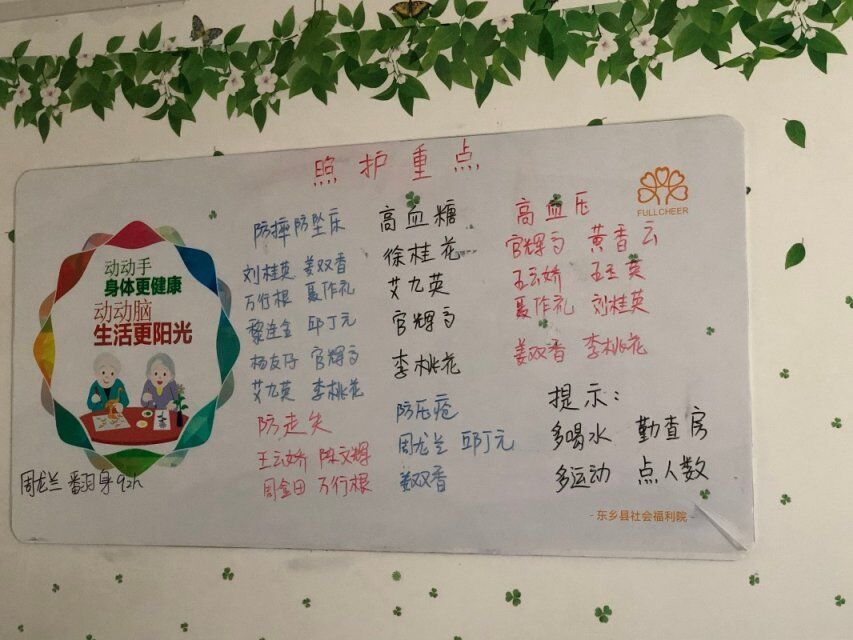 照护重点
FULLCHEER
动动手
身体更健康
动动脑
生活更阳光
周龙兰 翻身q2h
防摔防坠床
刘桂英 姜双香
万行根 聂作礼
黎连金 邱丁元
杨友孖 官辉
艾九英 李桃花
防走失
王云娇 陈文辉
周金田 万行根
高血糖
徐桂花
艾九英
官辉
李桃花
防压疮
周龙兰 邱丁元
姜双香
高血压
官辉 黄香云
王云娇 王丞英
聂作礼 刘桂英
姜双香 李桃花
提示：
多喝水 勤查房
多运动 点人数
- 东乡县社会福利院 -